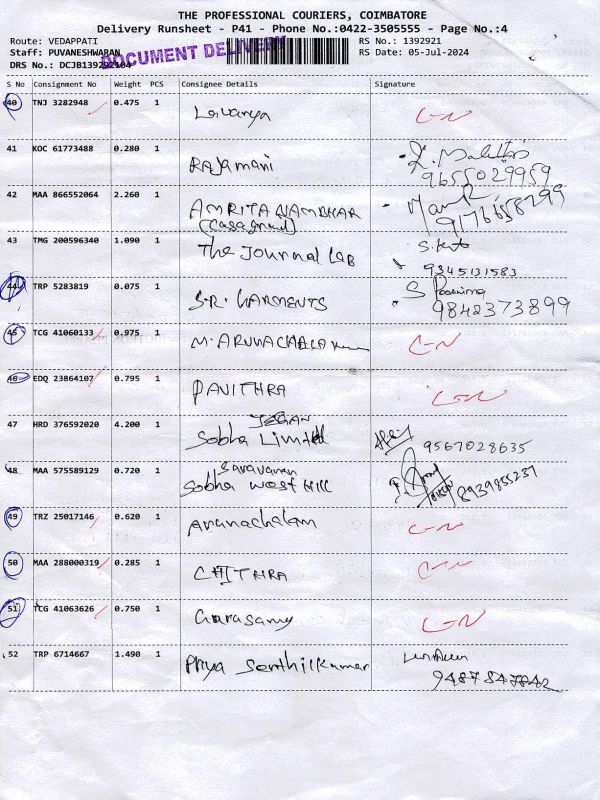 THE PROFESSIONAL COURIERS, COIMBATORE
Delivery Runsheet - P41 - Phone No.:0422-3505555 - Page No.:4
Route: VEDAPPATI RS No.: 1392921
Staff: PUVANESHWARAN RS Date: 05-Jul-2024
DOCUMENT DELIVERY
DRS No.: DCJB139292104
S No Consignment No Weight PCS Consignee Details Signature
40 TNJ 3282948 0.475 1 Lavanya L-N
41 KOC 61773488 0.280 1 Rajamani
9655029959
42 MAA 866552064 2.260 1 AMRITA NAMBHAR
(Casagrand) 9176658799
43 TMG 200596340 1.090 1 The JOURNAL LAB
9345131583
44 TRP 5283819 0.075 1 S.R. GARMENTS S Poornima
9842373899
45 TCG 41060133 0.975 1 M. ARUNACHALA L-N
46 EDQ 23864107 0.795 1 PAVITHRA L-N
47 HRD 376592020 4.200 1 JEGAN
Sobha Limited 9567028635
48 MAA 575589129 0.720 1 Saravanan
Sobha West Hill 8939855237
49 TRZ 25017146 0.620 1 Arunachalam L-N
50 MAA 288000319 0.285 1 CHITHRA L-N
51 TCG 41063626 0.750 1 L-N
52 TRP 6714667 1.490 1 Priya Senthilkumar
9487847842